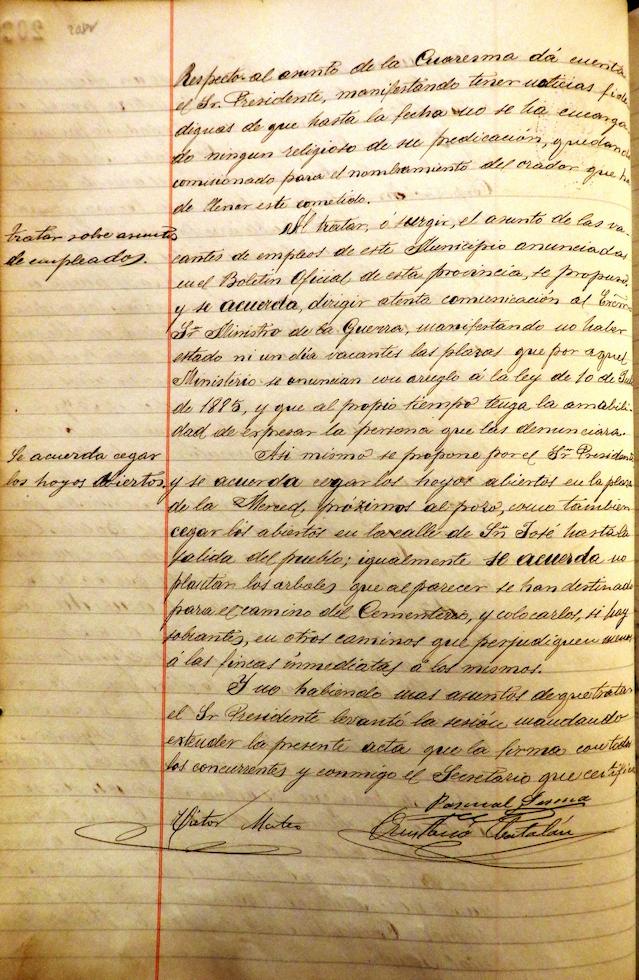 Respecto al asunto de la Cuaresma dá cuenta
el Sr. Presidente, manifestando tener noticias fide
dignas de que hasta la fecha no se ha encarga
do ningun religioso de su predicación, quedando
comisionado para el nombramiento del orador que ha
de tener este cometido.
tratar sobre asunto
de empleados.
Al tratar, ó surgir, el asunto de las va
cantes de empleos de este Municipio anunciadas
en el Boletin Oficial de esta provincia, se propuso,
y se acuerda, dirigir atenta comunicación al Excmo
Sr. Ministro de la Guerra, manifestando no haber
estado ni un dia vacantes las plazas que por aquel
Ministerio se anuncian con arreglo á la ley de 10 de
de 1885, y que al propio tiempo tenga la amabili
dad de expresar la persona que las denunciara.
Se acuerda cegar
los hoyos abiertos
Asi mismo se propone por el Sr. Presidente
y se acuerda cegar los hoyos abiertos en la plaza
de la Merced, próximos al pozo, como tambien
cegar los abiertos en la calle de Sn. José hasta la
salida del pueblo; igualmente se acuerda no
plantan los arboles que al parecer se han destinado
para el camino del Cementerio, y colocarlos, si hay
sobrantes, en otros caminos que perjudiquen menos
á las fincas inmediatas á los mismos.
Y no habiendo mas asuntos de que tratar
el Sr Presidente levantó la sesión mandando
extender la presente acta que la firma con todos
los concurrentes y conmigo el Secretario que certifico
Pascual
Victor Mateo
Catalán